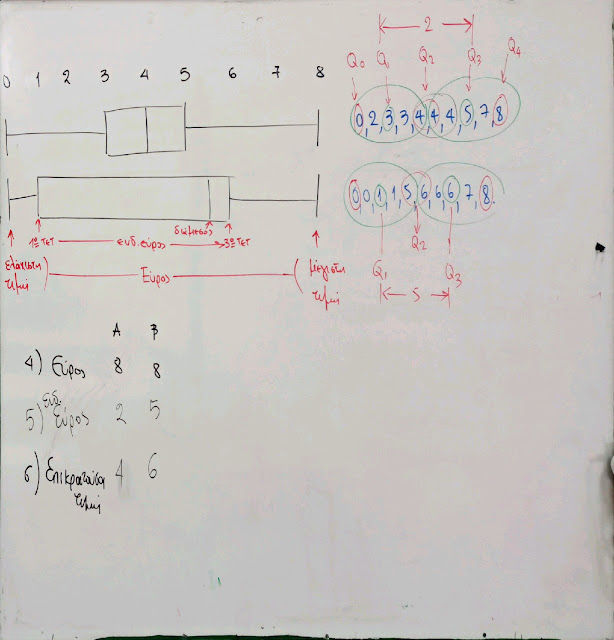 0 1 2 3 4 5 6 7 8
1º ΤΕΤ ενδ.εύρος διάμεσος 3º ΤΕΤ
ελάχιστη τιμή Εύρος μέγιστη τιμή
2
Q0 Q1 Q2 Q3 Q4
0, 2, 3, 3, 4, 4, 4, 5, 7, 8
0, 0, 1, 1, 5, 6, 6, 6, 7, 8.
Q2
Q1 Q3
5
Α Β
4) Εύρος 8 8
5) ενδ. εύρος 2 5
6) Επικρατούσα τιμή 4 6